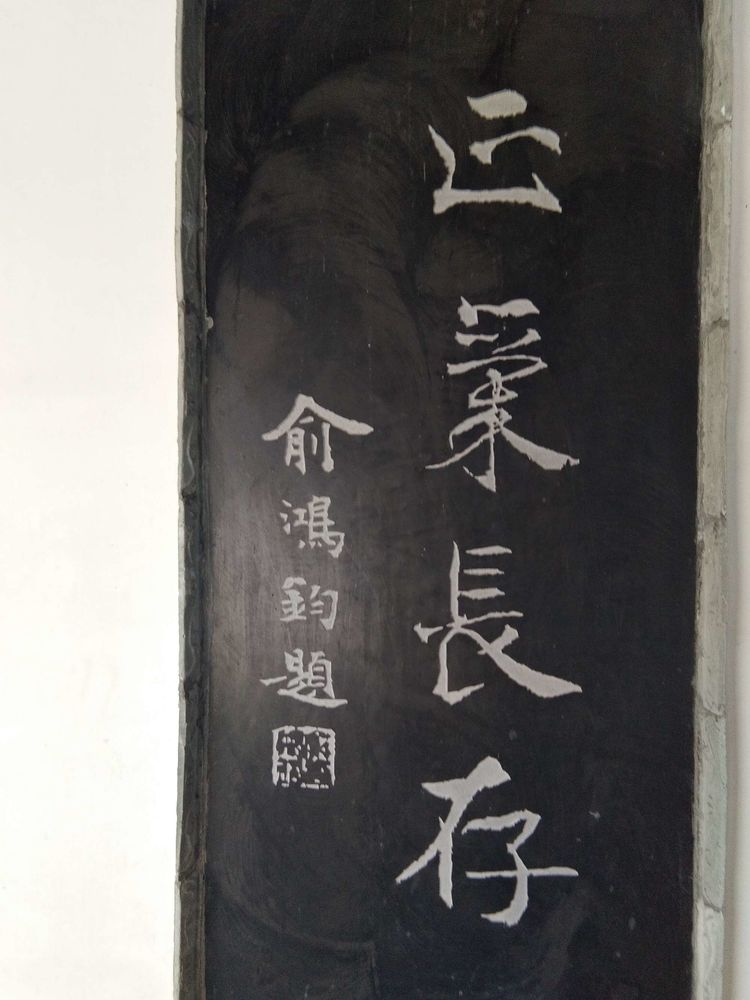 正氣長存
俞鴻鈞題